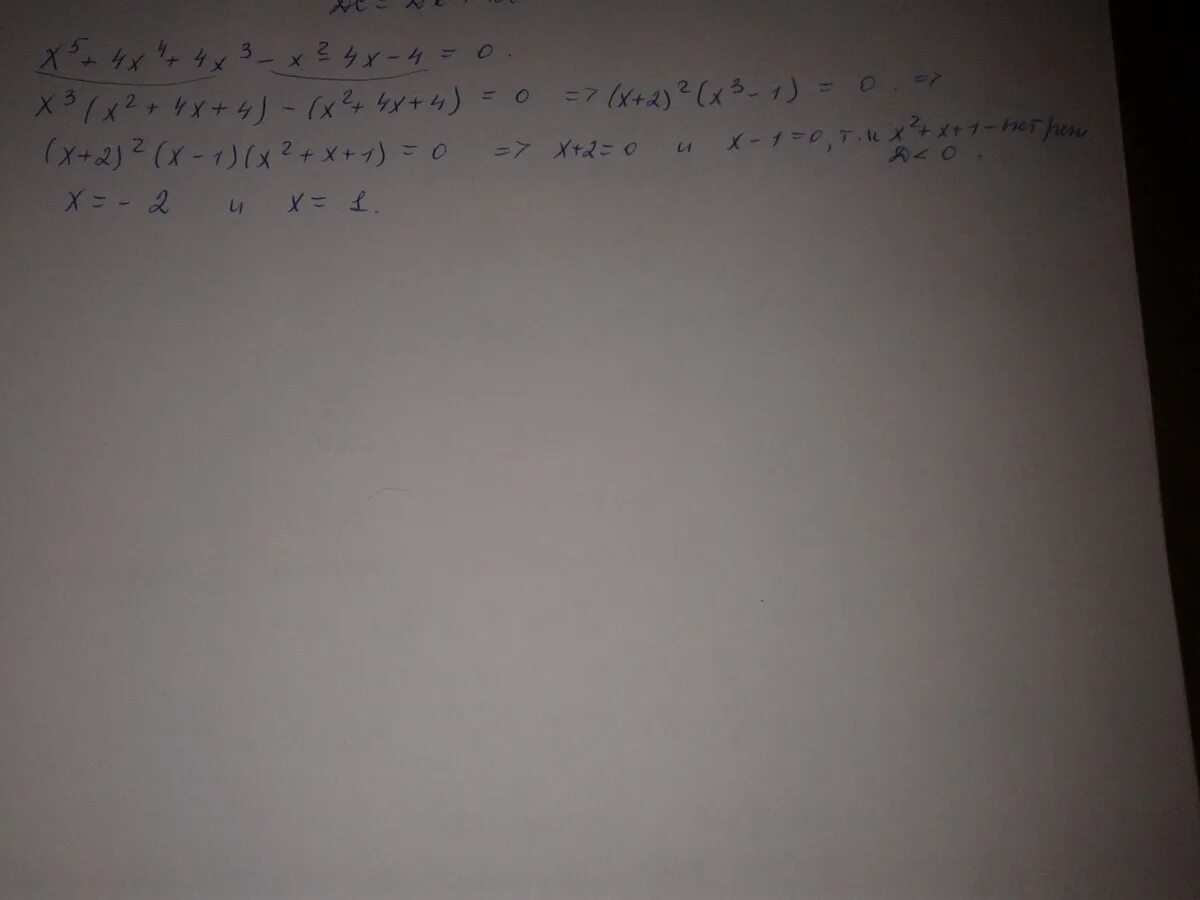 x⁵ + 4x⁴ + 4x³ - x² - 4x - 4 = 0.
x³(x² + 4x + 4) - (x² + 4x + 4) = 0 => (x+2)²(x³ - 1) = 0. =>
(x+2)²(x-1)(x² + x + 1) = 0 => x+2=0 и x-1=0, т.к x² + x + 1 - нет реш
D < 0.
x = - 2 и x = 1.